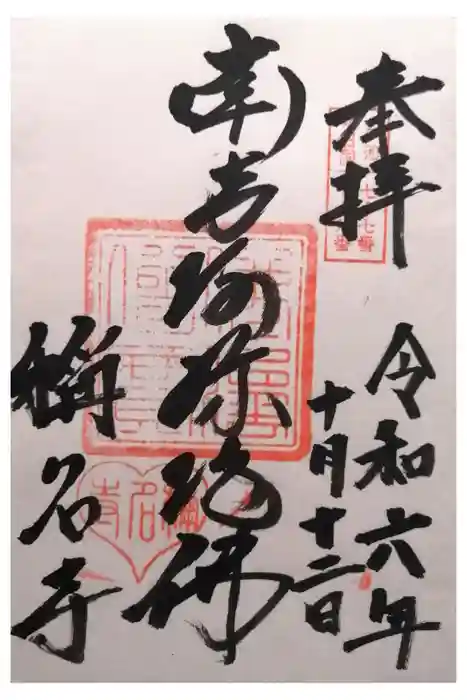 奉拝
令和六年
十月十二日
南无阿弥陀佛
稱名寺